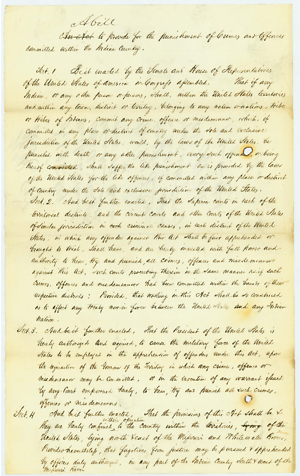 A Bill
to provide for the punishment of Crimes and Offences
committed within the Indian Country.
Sec. 1 Be it enacted by the Senate and House of Representatives
of the United States of America in Congress assembled, That if any
Indian, or any other person or persons, shall, within the United States territories
and within any town, district or territory, belonging to any nation or nations, tribe
or tribes of Indians, commit any crime, offence or misdemeanor, which, if
committed in any place or district of country under the sole and exclusive
jurisdiction of the United States would, by the laws of the United States, be
punished with death or any other punishment, every such offender on being
of the United States for the like offences, if committed within any place or district
of country under the sole and exclusive jurisdiction of the United States.
Sec. 2. And be it further enacted, That the Supreme courts in each of the
territorial districts, and the circuit courts and other courts of the United States
of similar jurisdiction in criminal causes, in each district of the United
States, in which any offender against this Act shall be first apprehended or
brought to trial shall have and are invested with full power and
authority to hear, try and punish all crimes, offences and misdemeanors
against this Act, such courts proceeding therein in the same manner as if such
crimes, offences and misdemeanors had been committed within the bounds of their
respective districts: Provided, that nothing in this Act shall be so construed
as to affect any treaty now in force between the United States and any Indian
nation.
Sec. 3. And be it further enacted, That the President of the United States is
hereby authorized and required, to cause the military force of the United
States to be employed in the apprehension of offenders under this Act, upon
the requisition of the Governor of the Territory in which any crime, offence or
misdemeanor may be committed, or in the execution of any warrant issued
by any court empowered hereby, to hear, try and punish all such crimes,
offences or misdemeanors.
Sec. 4 And be it further enacted, That the provisions of this Act shall be
confined, to the country within the territories,
United States, lying north East of the Missouri and Whitewater Rivers,
Provided nevertheless, that fugitives from justice may be pursued & apprehended
by officers duly authorized, in any part of the Indian Country South & west of the